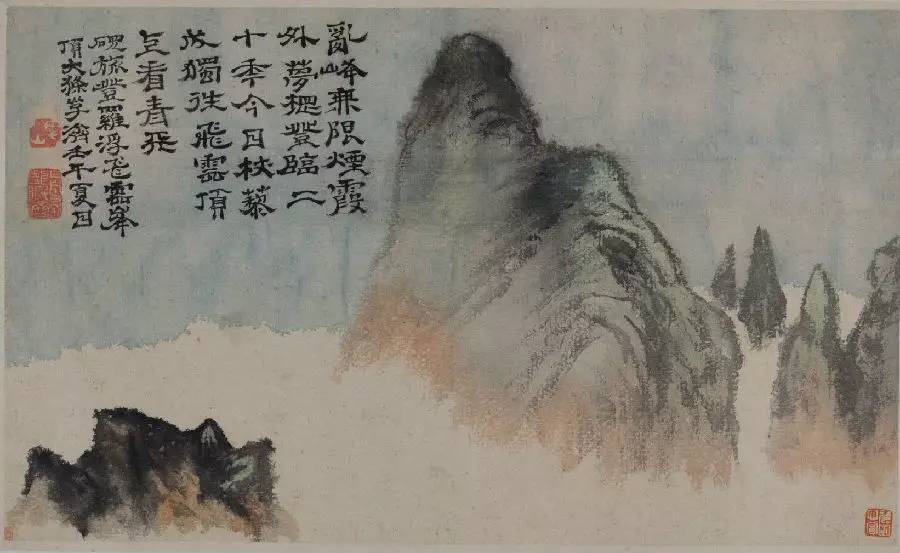 亂峰無限煙霞
外夢想登臨二
十年今日杖藜
成獨往飛雲頂
上看青天
硯旅登羅浮飛雲峯
頂大滌子濟壬午夏日